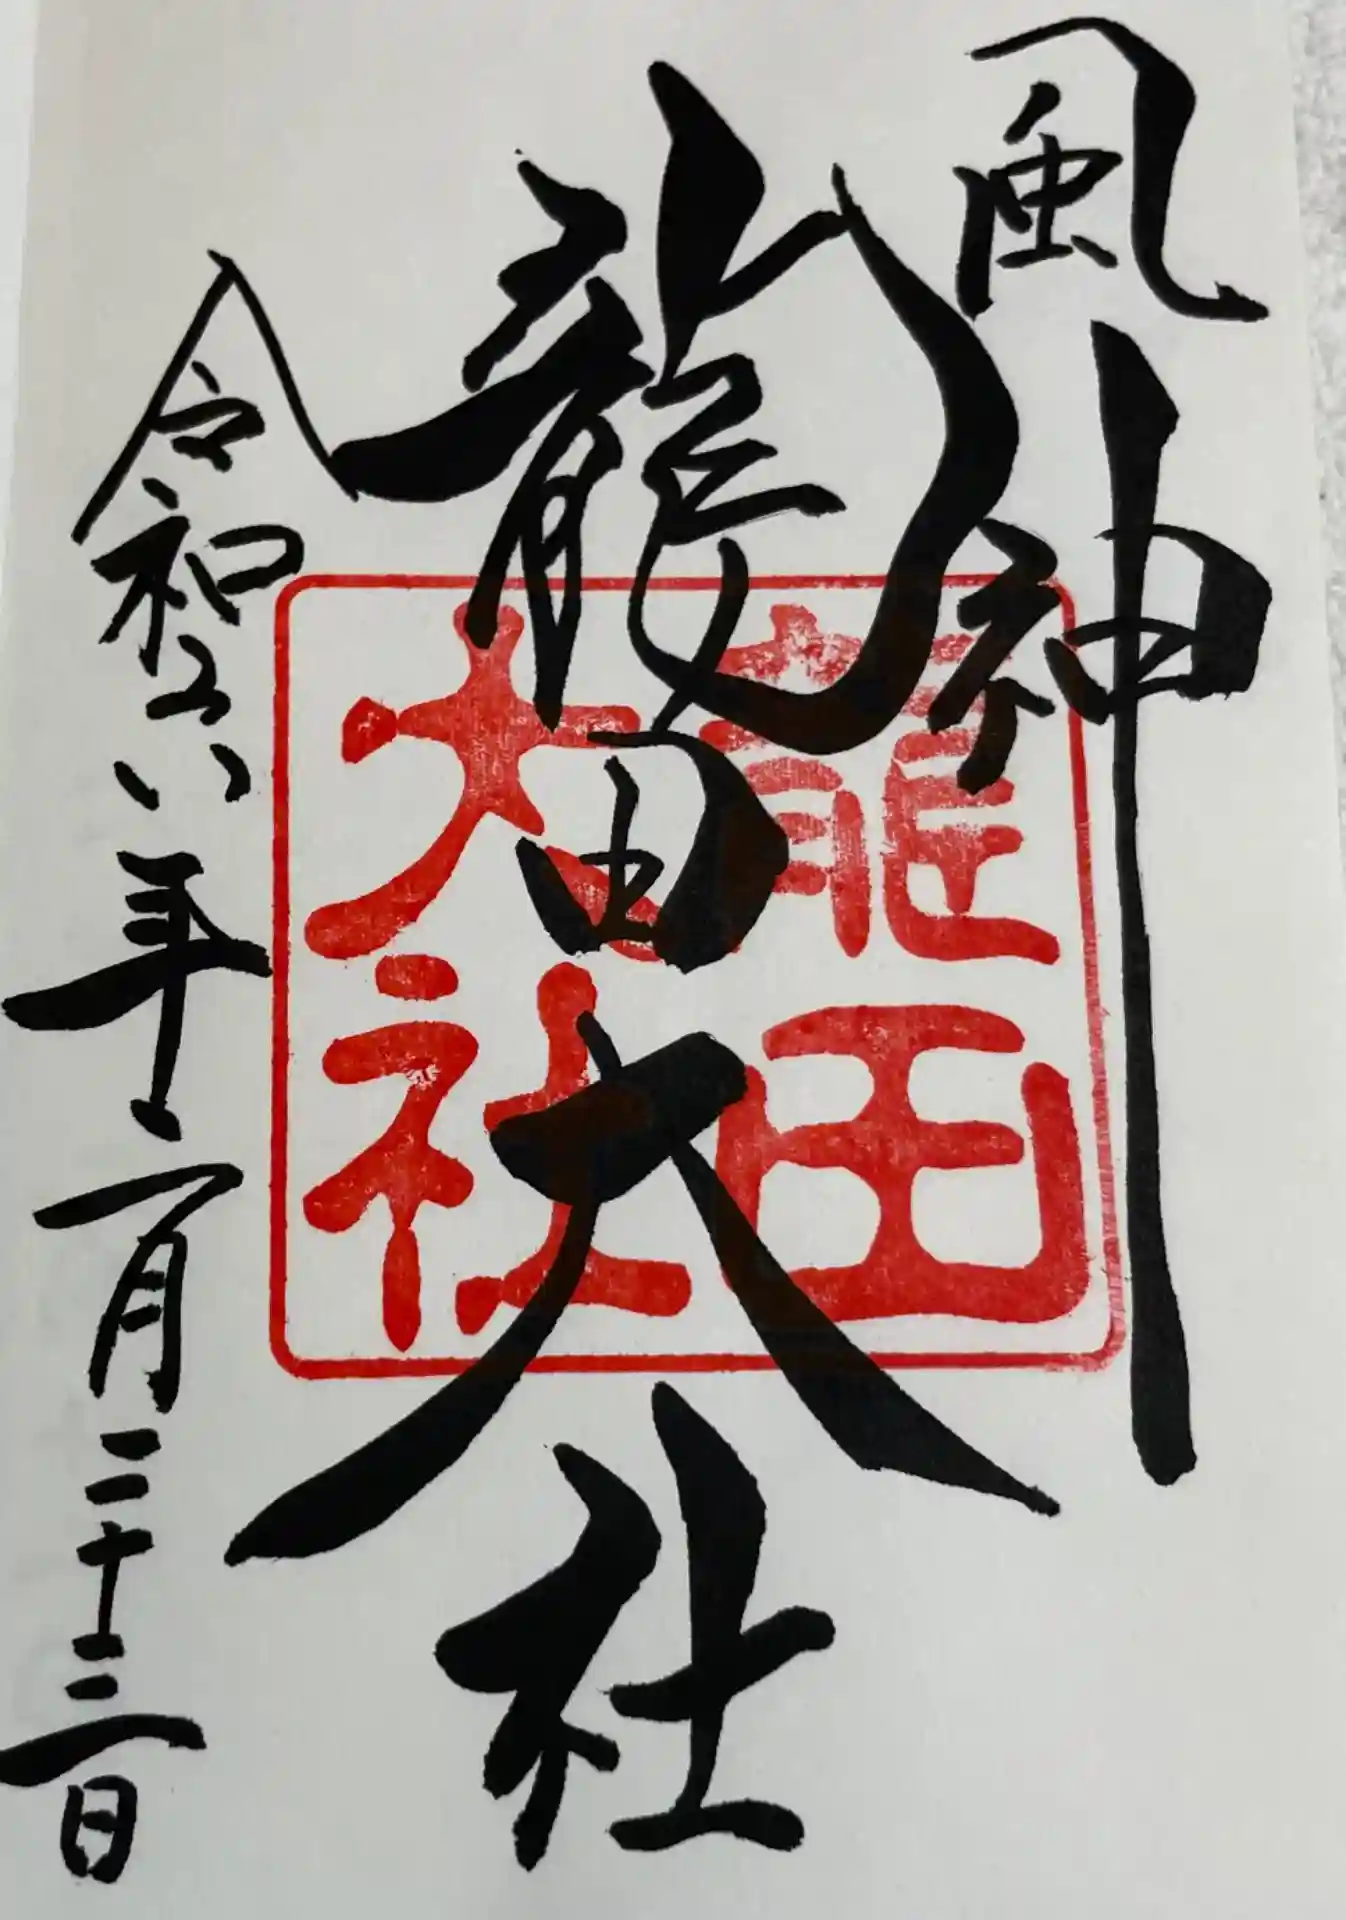 風神
龍田大社
龍田
大社
令和六年一月二十三日